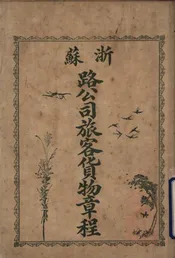 浙蘇
路公司旅客貨物章程